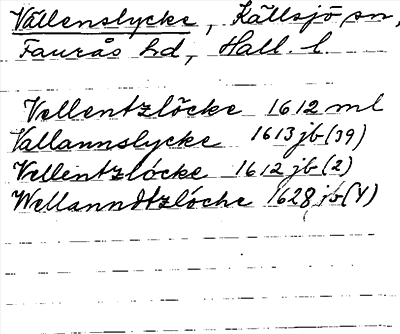 Vällenslycke, Källsjö sn,
Faurås hd, Hall. l.
Vellentzlöcke 1612 ml
Vallannslycke 1613 jb (39)
Vellentzlöcke 1612 jb (2)
Wellanndtzlöche 1628 jb (4)